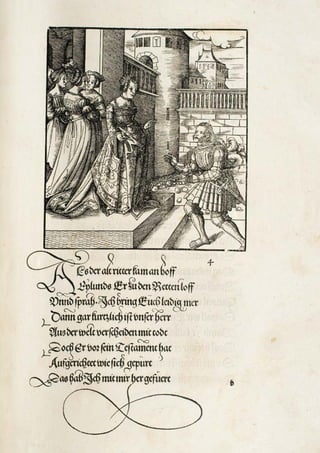 4
Als der alt ritter kam an hoff
Eylunds Er zu den Retten loff
Vnnd sprach Ich bring Euch leidig mer
Dann gar kurtzlich ist vnser herr
Aus der welt verscheiden mit todt
Doch Er vor sein Testament hat
Aufgerichtet wie sich gepürt
Das hab Ich mit mir her gefuert
b